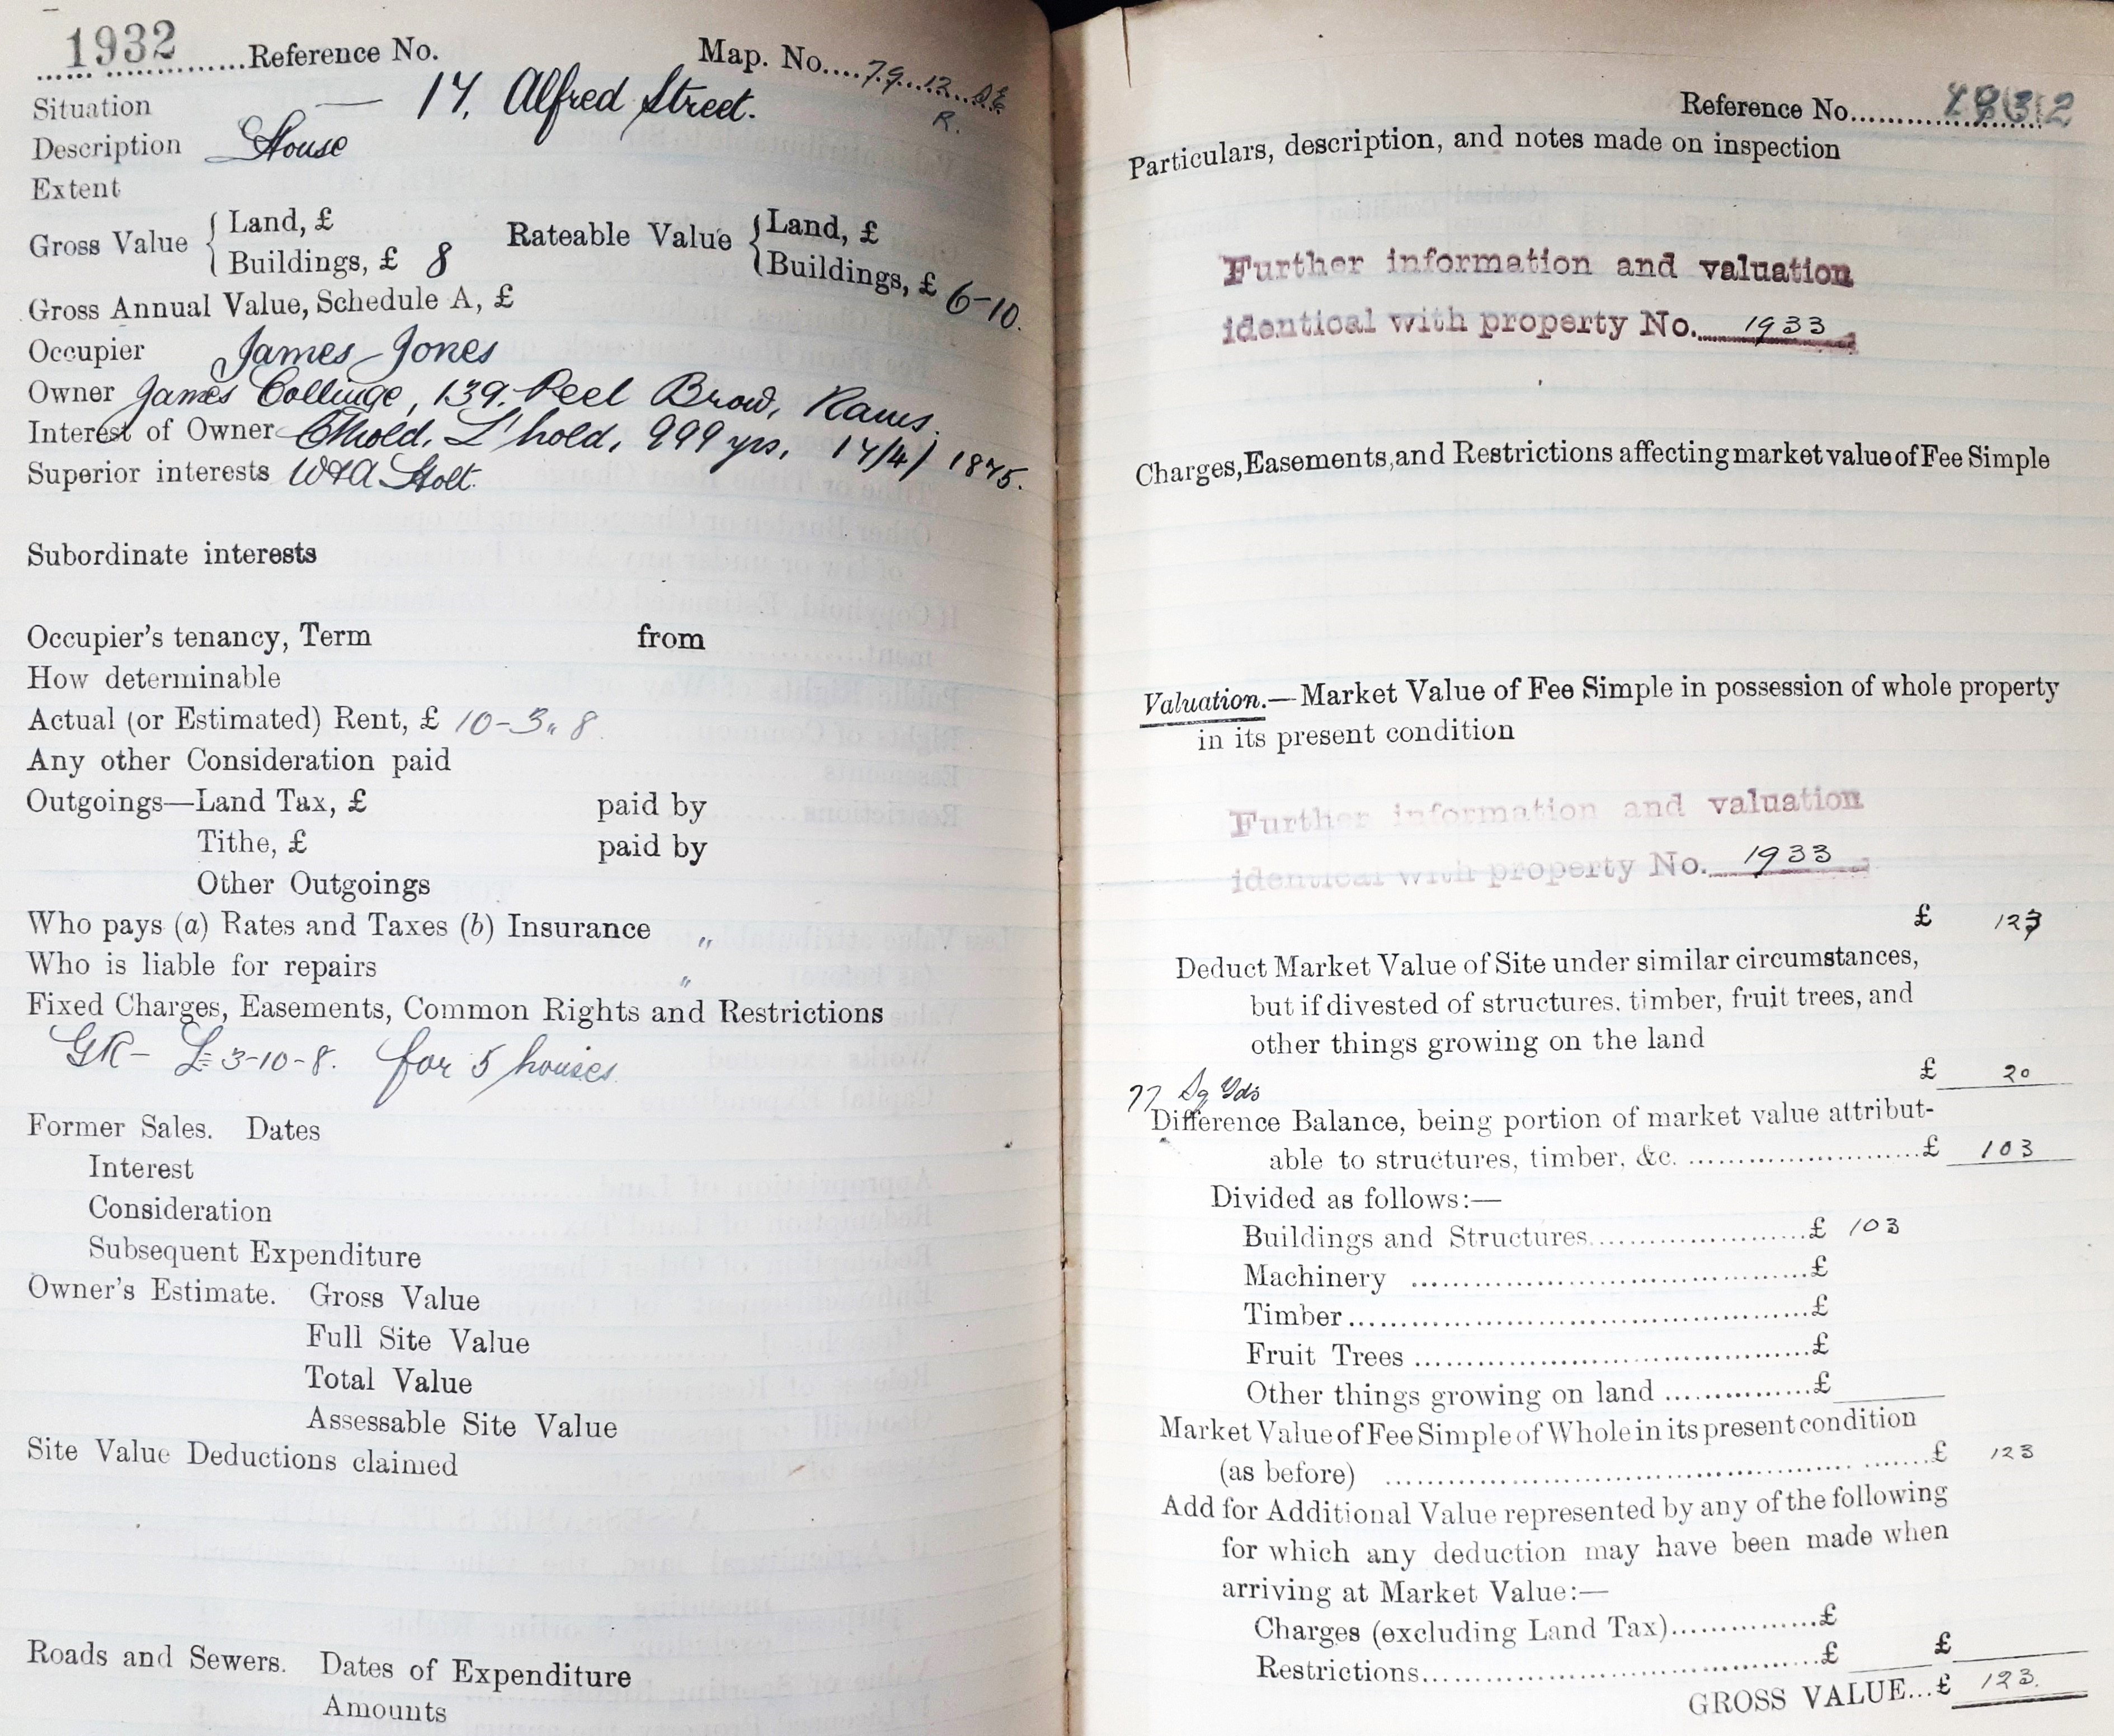 1932 Reference No. Map. No. 79.12.
R.
Situation — 17, Alfred Street.
Description House
Extent
Gross Value { Land, £ Rateable Value { Land, £
Buildings, £ 8 Buildings, £ 6-10.
Gross Annual Value, Schedule A, £
Occupier James Jones
Owner James Collinge, 139, Peel Brow, Rams.
Interest of Owner L'hold, 999 yrs, 17/4/1875.
Superior interests W & A Holt.
Subordinate interests
Occupier's tenancy, Term from
How determinable
Actual (or Estimated) Rent, £ 10-3.8.
Any other Consideration paid
Outgoings—Land Tax, £ paid by
Tithe, £ paid by
Other Outgoings
Who pays (a) Rates and Taxes (b) Insurance "
Who is liable for repairs "
Fixed Charges, Easements, Common Rights and Restrictions
GR- £3-10-8. for 5 houses.
Former Sales. Dates
Interest
Consideration
Subsequent Expenditure
Owner's Estimate. Gross Value
Full Site Value
Total Value
Assessable Site Value
Site Value Deductions claimed
Roads and Sewers. Dates of Expenditure
Amounts
Reference No. 1932
Particulars, description, and notes made on inspection
Further information and valuation
identical with property No. 1933
Charges, Easements, and Restrictions affecting market value of Fee Simple
Valuation.—Market Value of Fee Simple in possession of whole property
in its present condition
Further information and valuation
identical with property No. 1933
£ 123
Deduct Market Value of Site under similar circumstances,
but if divested of structures. timber, fruit trees, and
other things growing on the land
£ 20
77 Sq Yds
Difference Balance, being portion of market value attribut-
able to structures, timber, &c. £ 103
Divided as follows:—
Buildings and Structures £ 103
Machinery £
Timber £
Fruit Trees £
Other things growing on land £
Market Value of Fee Simple of Whole in its present condition
(as before) £ 123
Add for Additional Value represented by any of the following
for which any deduction may have been made when
arriving at Market Value:—
Charges (excluding Land Tax) £
Restrictions £ £
GROSS VALUE...£ 123.